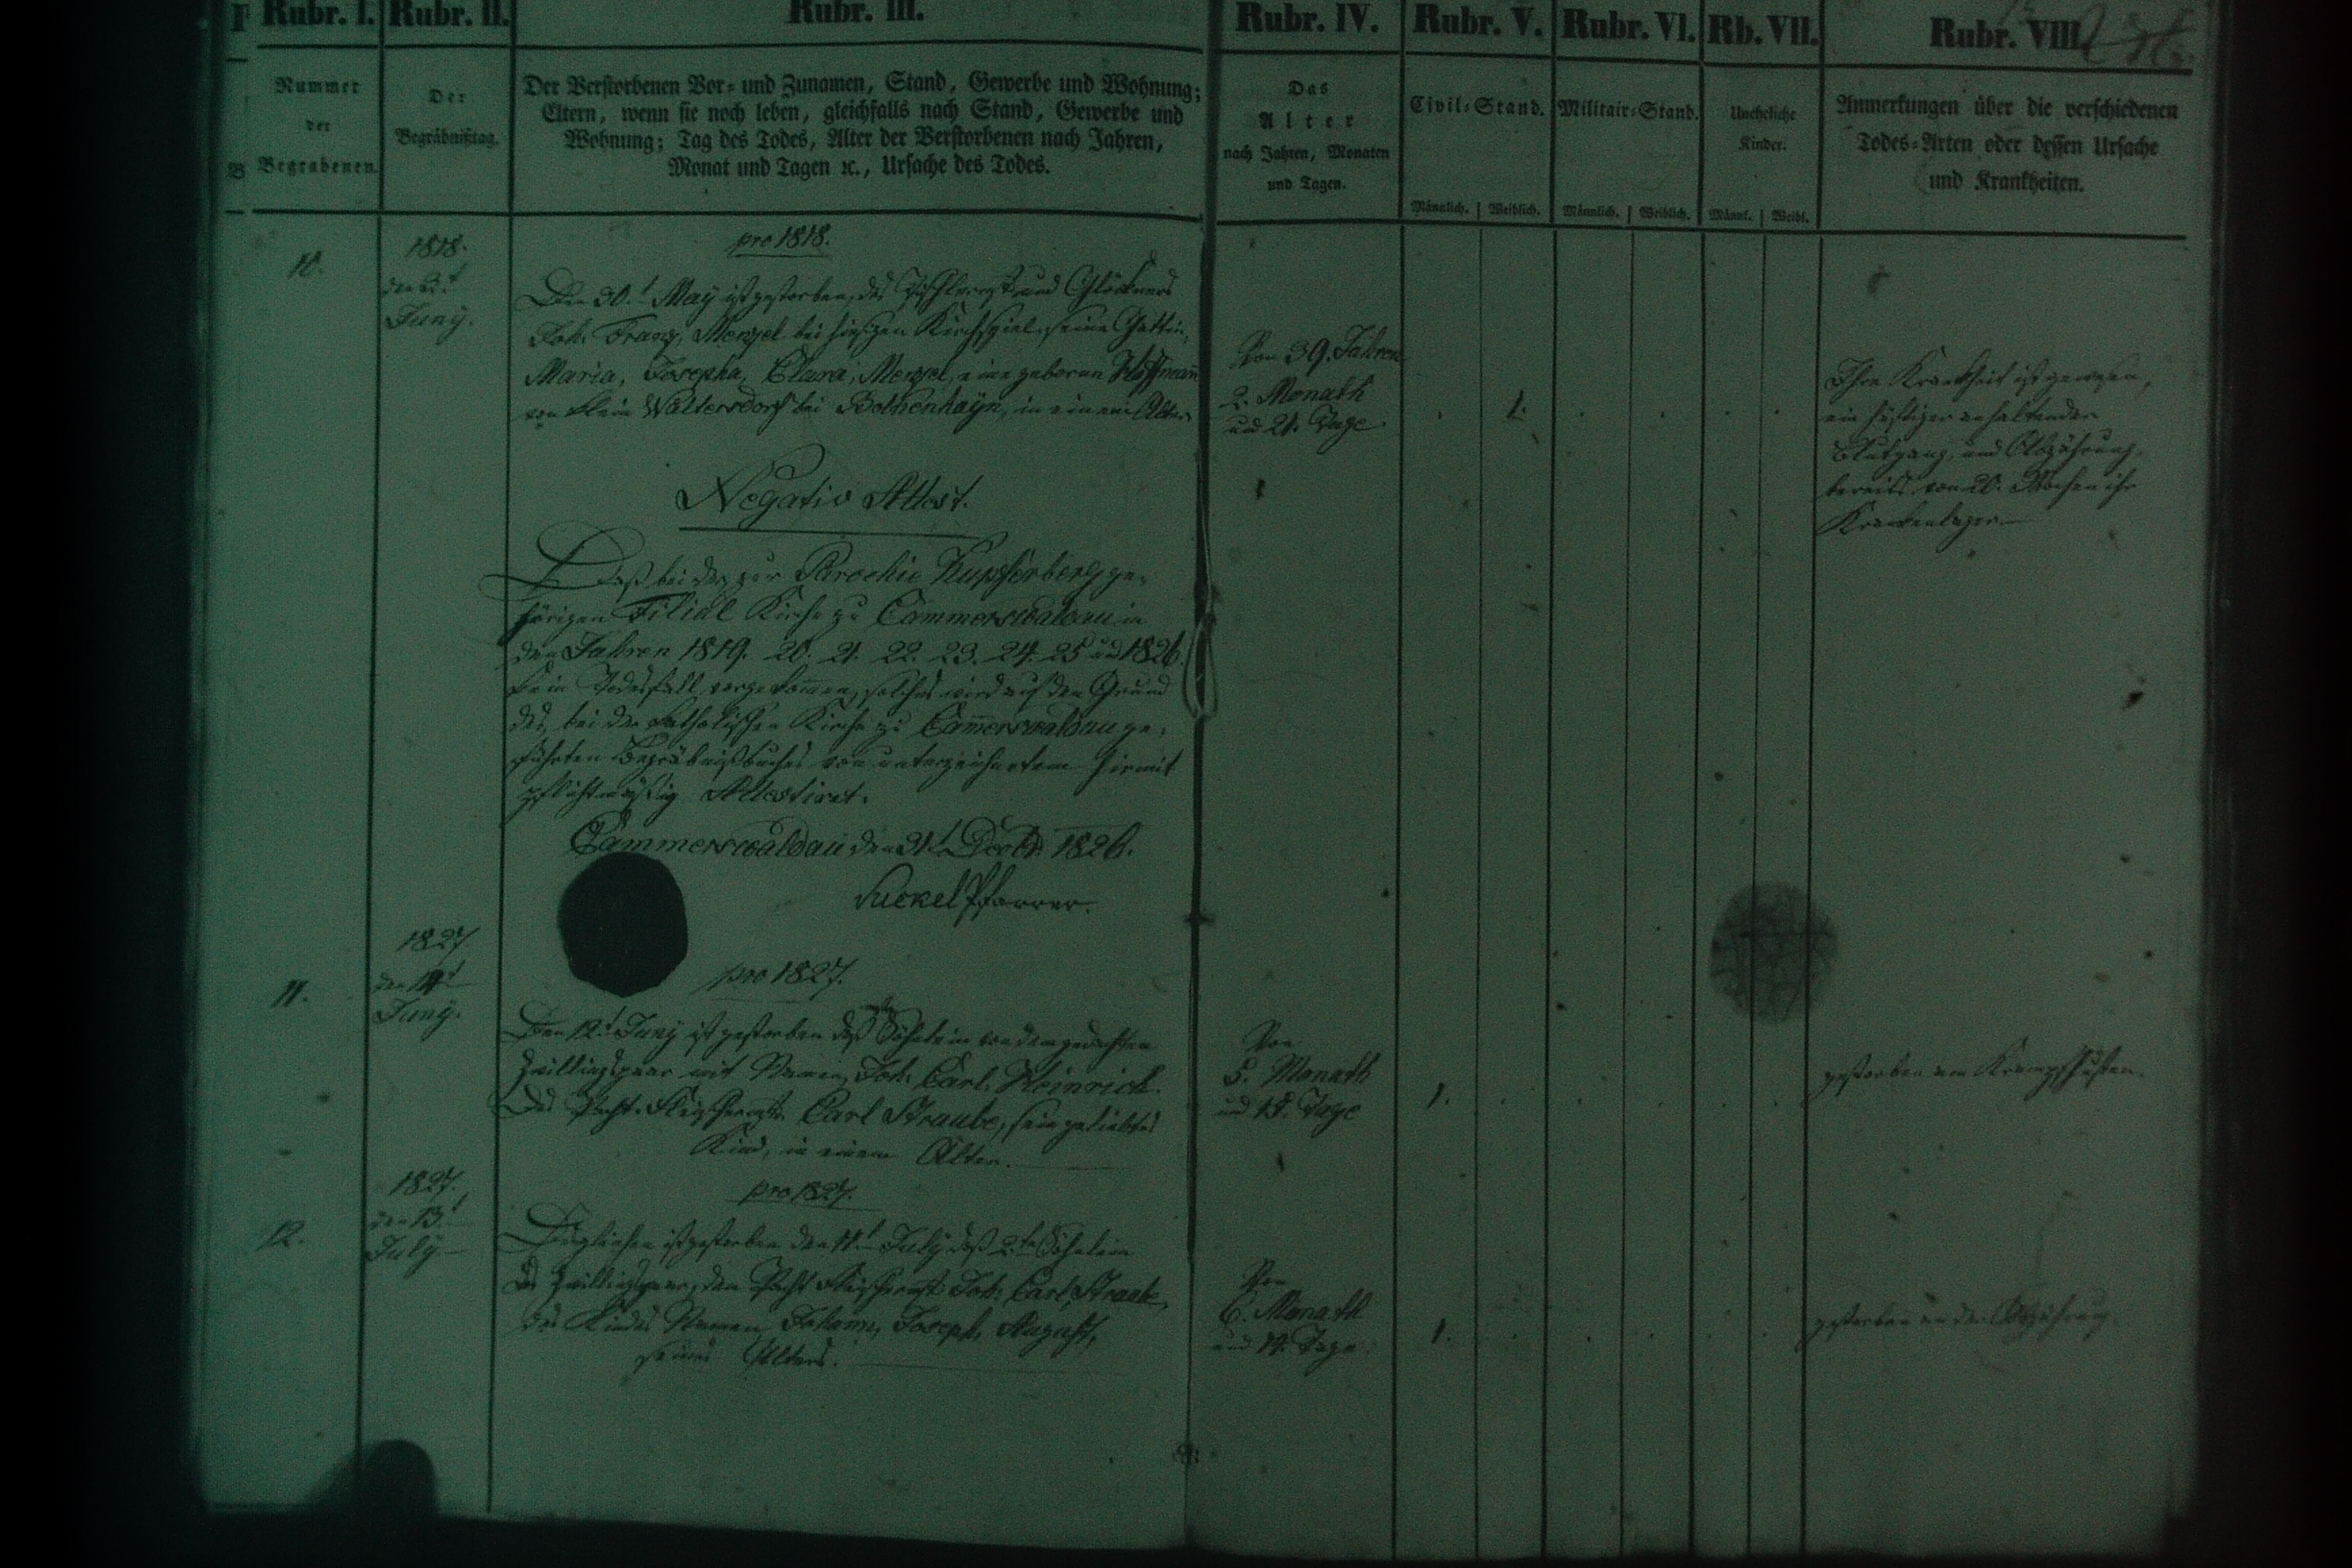 Rubr. I.
Rubr. II.
Rubr. III.
Rubr. IV.
Rubr. V.
Rubr. VI.
Rb. VII.
Rubr. VIII.
Nummer
der
Begrabenen.
Der
Begräbnißtag.
Der Verstorbenen Vor- und Zunamen, Stand, Gewerbe und Wohnung;
Eltern, wenn sie noch leben, gleichfalls nach Stand, Gewerbe und
Wohnung; Tag des Todes, Alter der Verstorbenen nach Jahren,
Monat und Tagen ꝛc., Ursache des Todes.
Das
Alter
nach Jahren, Monaten
und Tagen.
Civil-Stand.
Männlich. Weiblich.
Militair-Stand.
Männlich. Weiblich.
Uneheliche
Kinder.
Männl. Weibl.
Anmerkungen über die verschiedenen
Todes-Arten oder dessen Ursache
und Krankheiten.
10.
1818.
den 2t
Juny.
pro 1818.
Den 30.t May ist gestorben, des und Glöckners
Joh. Franz, Menzel bei hiesigen Kirchspiel, seine Gattin,
Maria, Josepha, Clara, Menzel, eine geborene Hoffmann
von Klein Waltersdorf bei Bolkenhayn, in einem Alter
Von 39. Jahren
2. Monath
und 21. Tage.
1.
Ihre Krankheit ist gewesen,
ein heftiger anhaltender
Blutgang, und Abzehrung,
bereits von Wochen ihr
Krankenlager.
Negativ Attest.
Daß bei der zur Parochie Kupferberg ge-
hörigen Filial Kirche zu Cammerswaldau in
den Jahren 1819. 20. 21. 22. 23. 24. 25 und 1826.
kein Todesfall vorgekommen, solches wird auf den Grund
des, bei der katholischen Kirche zu Camerswaldau ge-
führten Begräbnißbuches von unterzeichnetem hiermit
pflichtmäßig Attestiret.
Cammerswaldau den 31t Decbr. 1826.
Suckel Pfarrer.
11.
1827.
den 14t
Juny.
pro 1827.
Den 12.t Juny ist gestorben daß Söhnlein von dem gedachten
Zwillingspaar mit Namen, Joh. Carl, Heinrich.
Des Pacht Carl Straube, sein geliebtes
Kind, in einem Alter.
Von
5. Monath
und 18. Tage
1.
gestorben am Krampfhusten.
12.
1827.
den 13t
July
pro 1827.
Desgleichen ist gestorben den 11t July daß 2te Söhnlein
des Zwillingspaar, den Pacht Joh. Carl Straube,
des Kindes Namen, Johann, Joseph, August,
seines Alters.
Von
6. Monath
und 17. Tage
1.
gestorben an der Abzehrung.